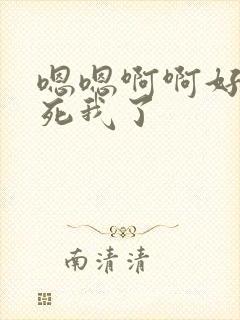 嗯嗯啊啊好
死我了
南清清